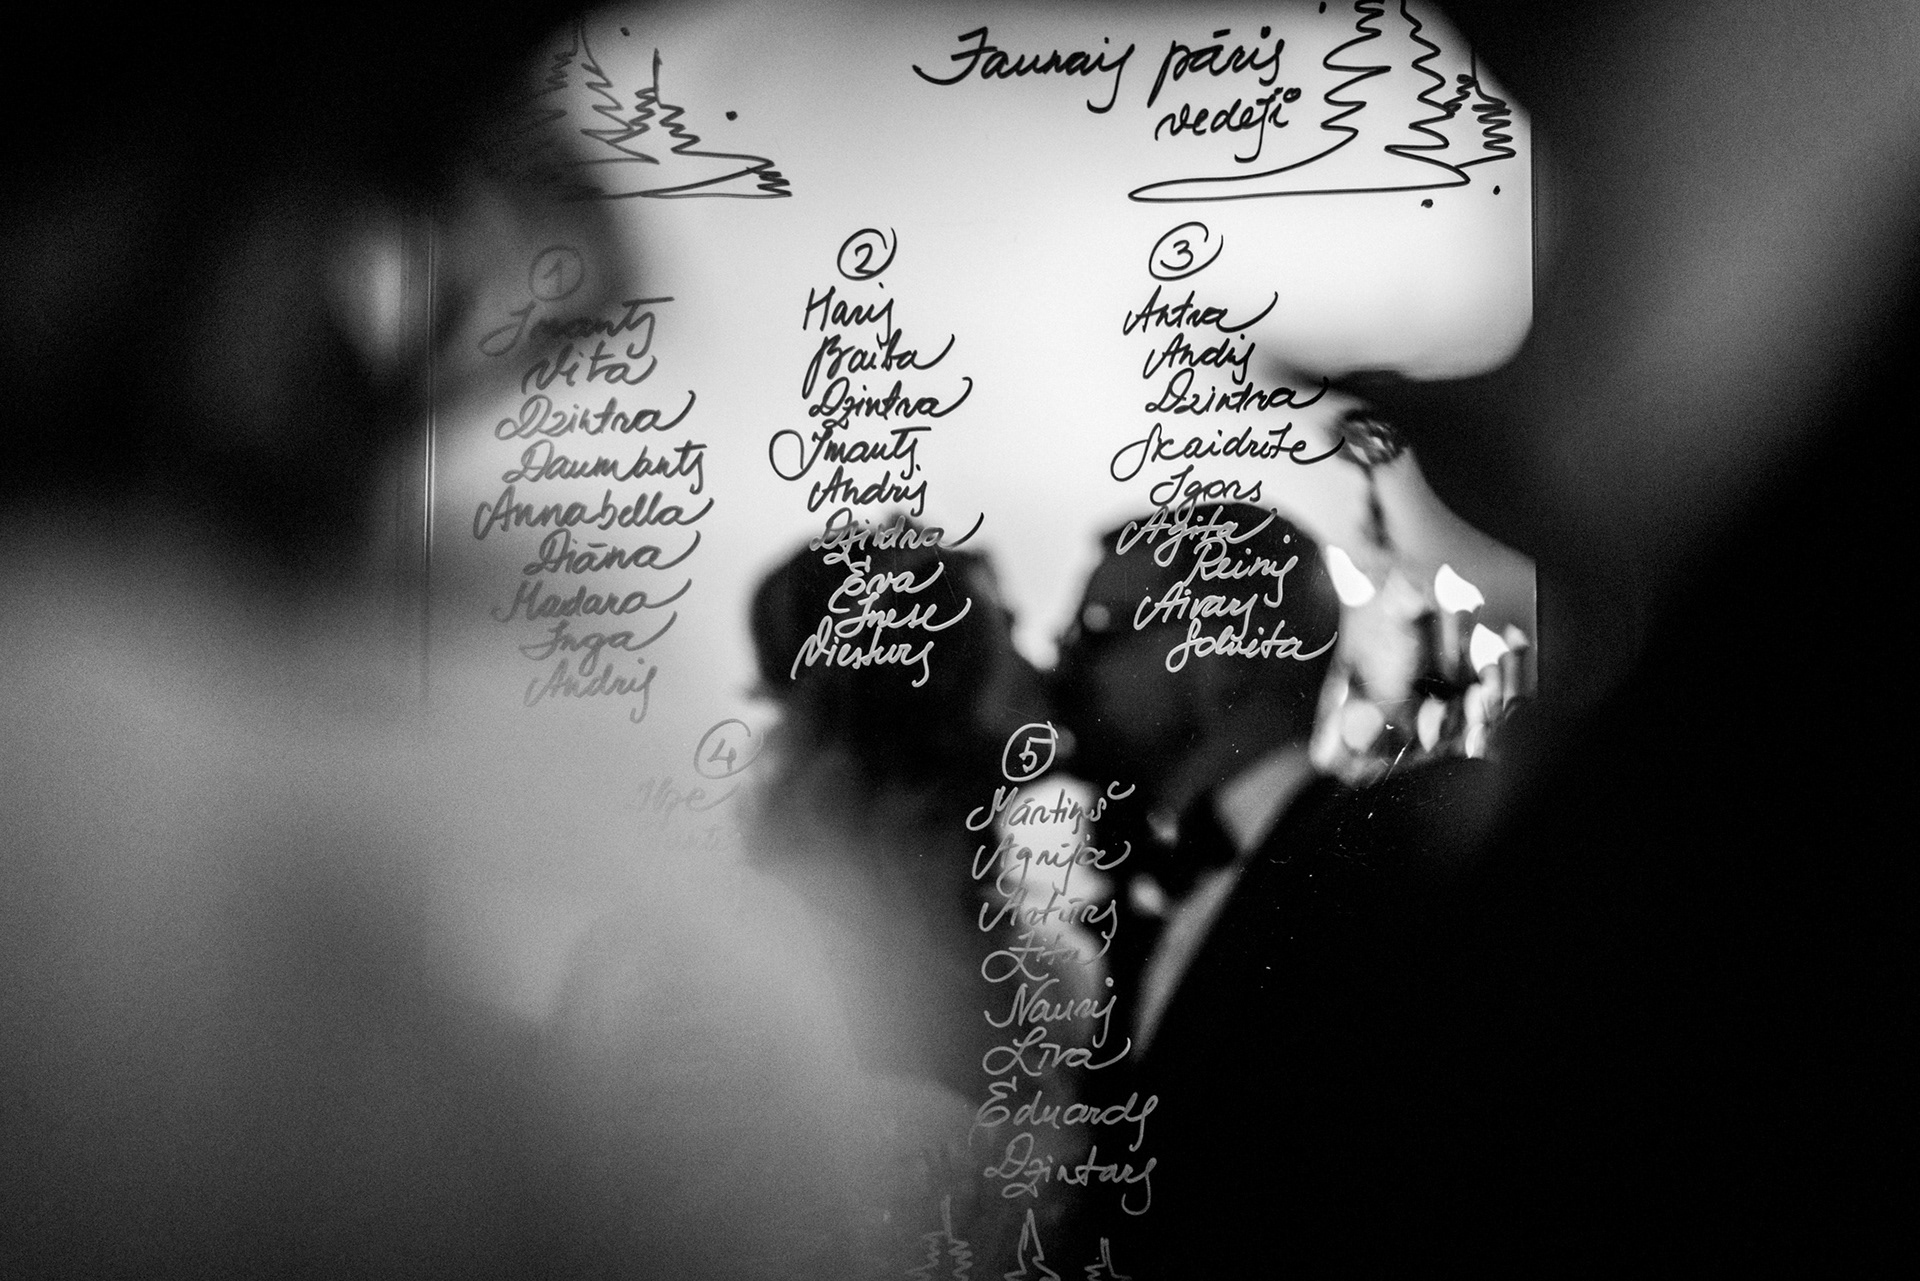 Jaunais pāris
vedēji
1
Imants
Vita
Dzintra
Daumants
Annabella
Diāna
Madara
Inga
Andris
2
Māris
Baiba
Dzintra
Imants
Andris
Dzintra
Ēva
Inese
Viesturs
3
Antra
Andis
Dzintra
Skaidrīte
Igors
Agita
Reinis
Aivars
Solvita
4
5
Mārtiņš
Agnija
Artūrs
Zita
Nauris
Līva
Eduards
Dzintars